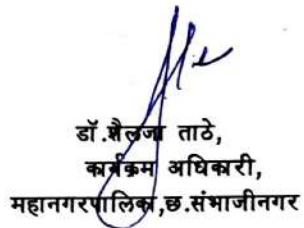 डॉ.शैलजा ताठे,
कार्यक्रम अधिकारी,
महानगरपालिका,छ.संभाजीनगर